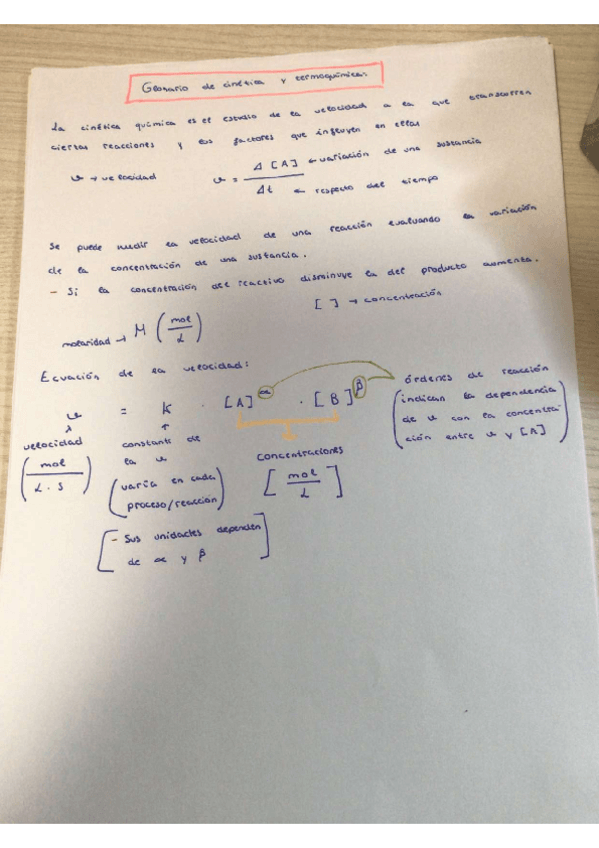 Glosario de cinética y termoquímica:
La cinética química es el estudio de la velocidad a la que transcurren
ciertas reacciones y los factores que influyen en ellas
v → velocidad v = Δ [A] / Δt ← variación de una sustancia
← respecto del tiempo
Se puede medir la velocidad de una reacción evaluando la variación
de la concentración de una sustancia.
- Si la concentración del reactivo disminuye la del producto aumenta.
[ ] → concentración
molaridad → M (mol / L)
Ecuación de la velocidad:
v = K · [A]^α · [B]^β
velocidad
(mol / L · s)
constante de
la v
(varía en cada
proceso/reacción)
[- Sus unidades dependen
de α y β]
concentraciones
[mol / L]
órdenes de reacción
(indican la dependencia
de v con la concentra-
ción entre v y [A])